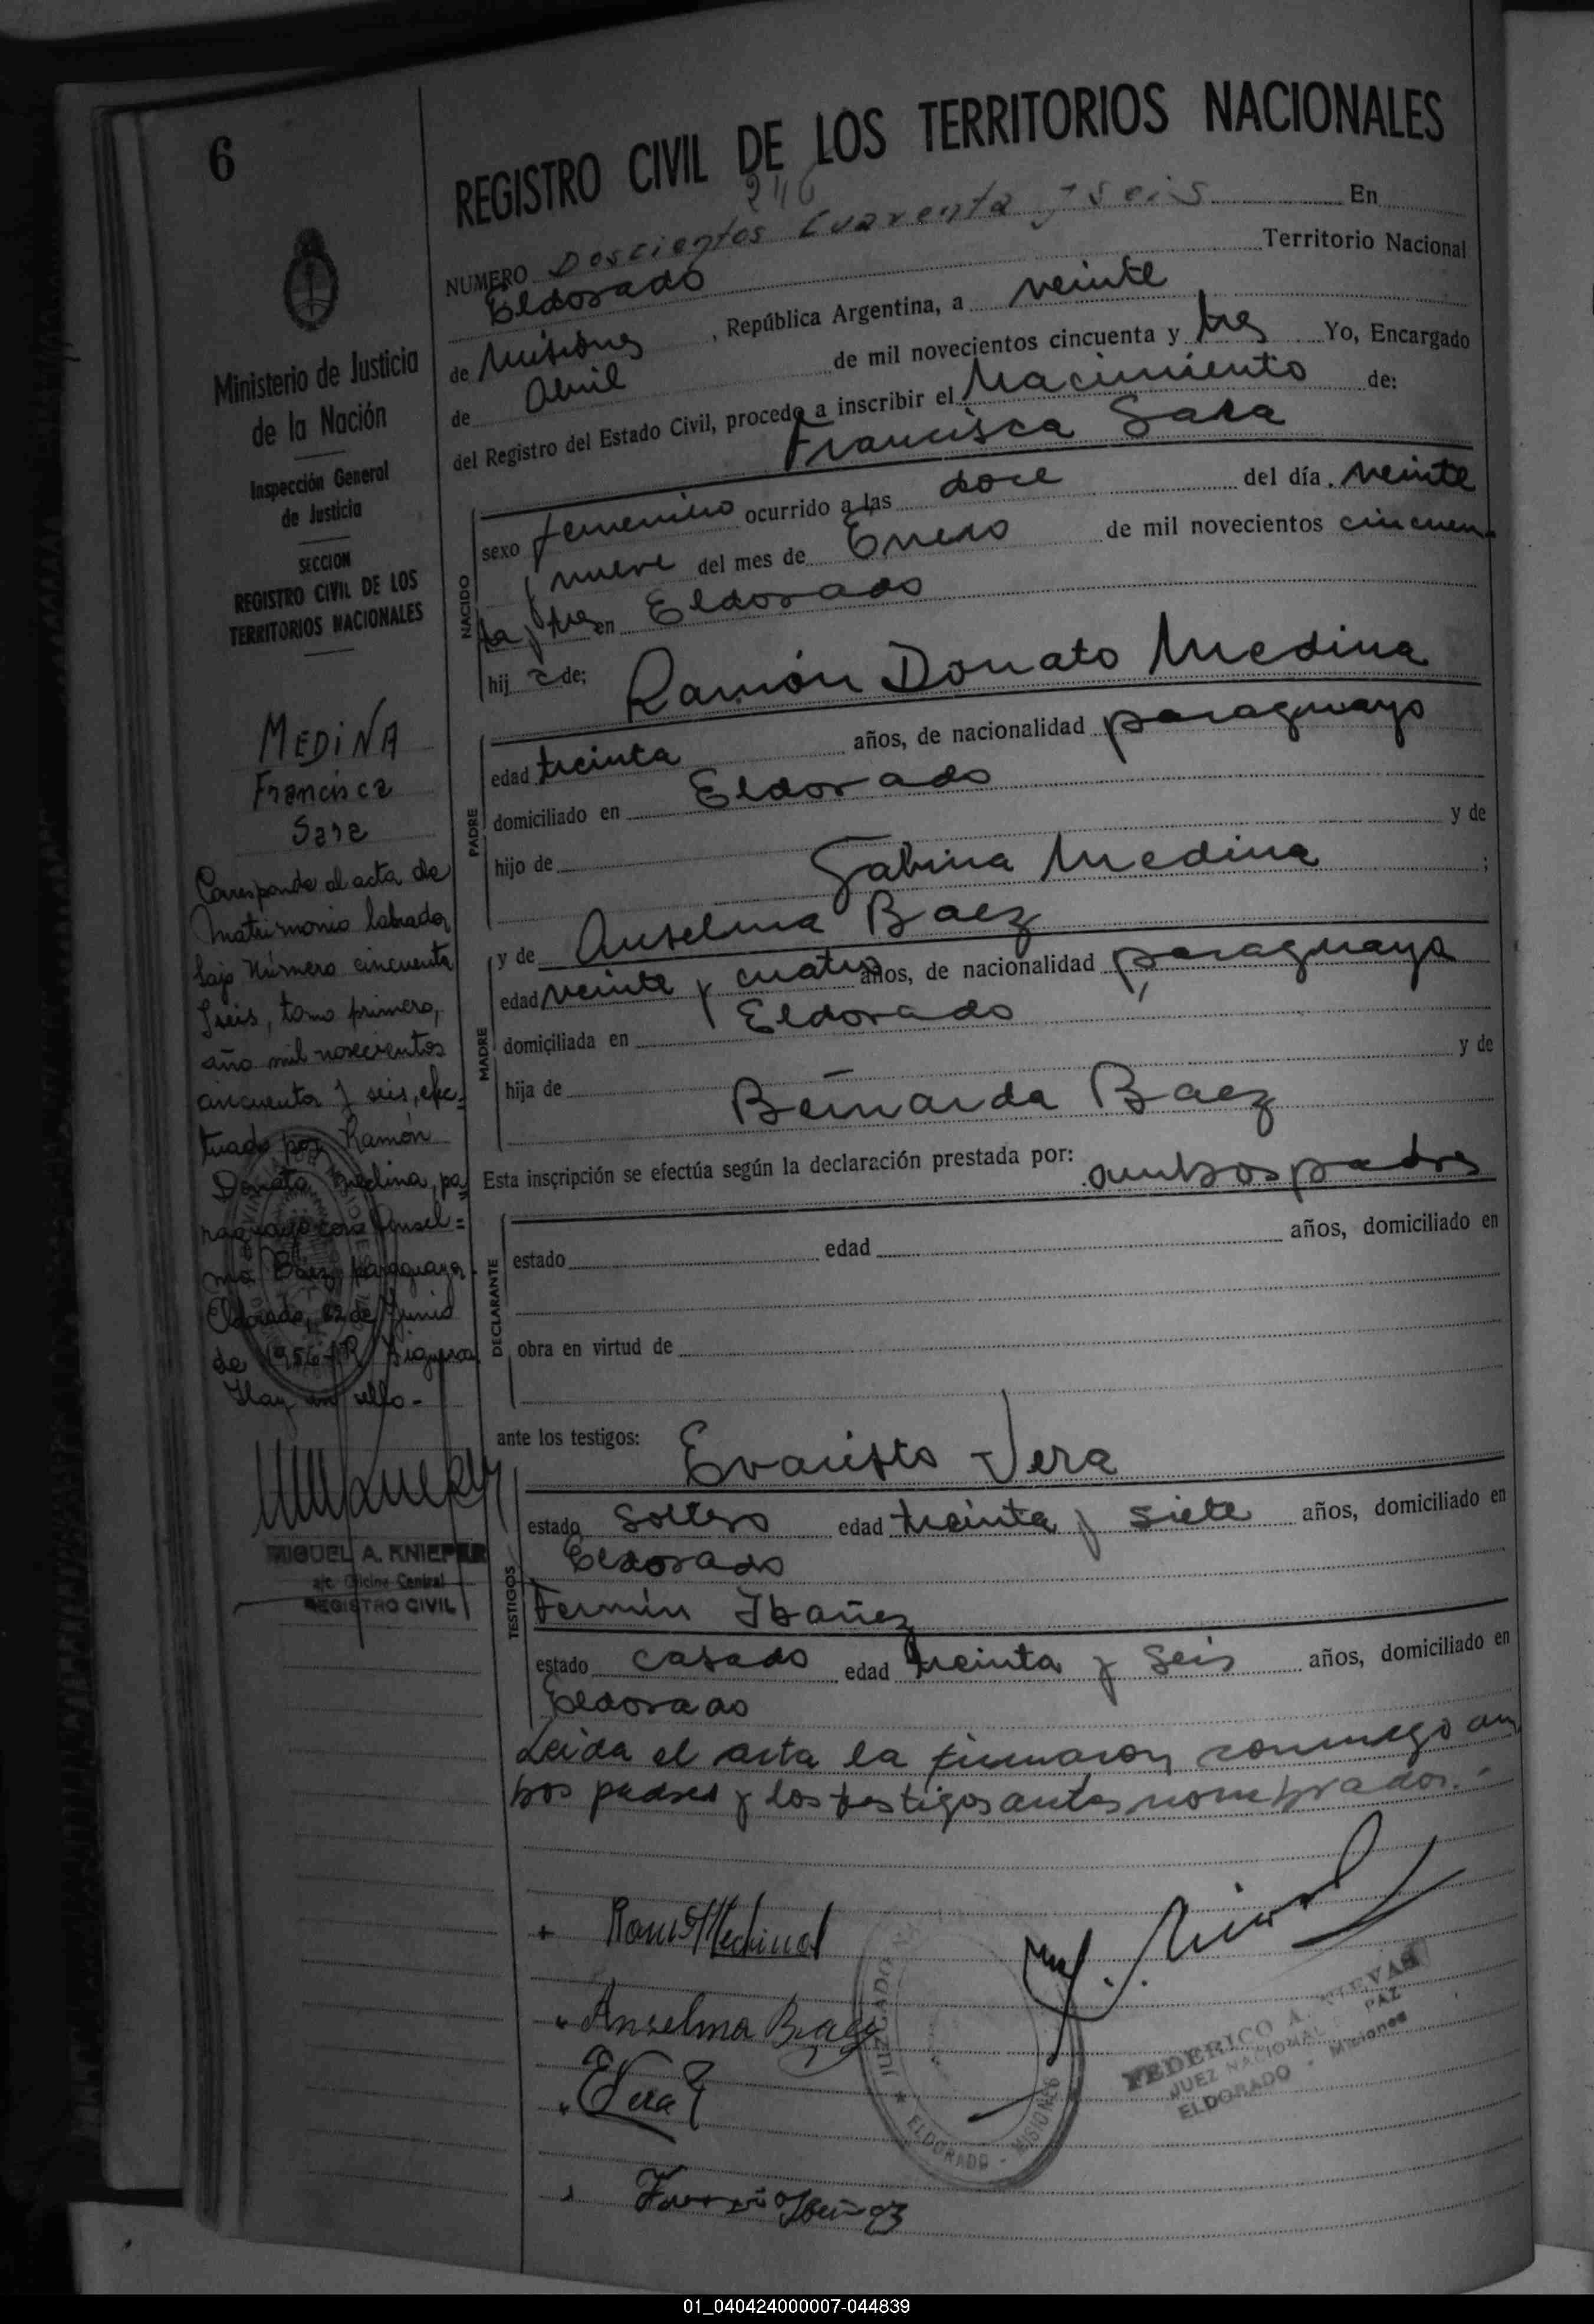 6
REGISTRO CIVIL DE LOS TERRITORIOS NACIONALES
246
NUMERO Doscientos Cuarenta y Seis En
Eldorado Territorio Nacional
de Misiones, República Argentina, a veinte
de Abril de mil novecientos cincuenta y tres Yo, Encargado
del Registro del Estado Civil, procedo a inscribir el Nacimiento de:
Francisca Sara
NACIDO
sexo femenino ocurrido a las doce del día veinte
y nueve del mes de Enero de mil novecientos cincuen
ta y tres en Eldorado
hij a de:
Ramón Donato Medina
PADRE
edad treinta años, de nacionalidad paraguayo
domiciliado en Eldorado
hijo de y de
Sabina Medina ;
y de Anselma Baez
MADRE
edad veinte y cuatro años, de nacionalidad paraguaya
domiciliada en Eldorado
hija de — y de
Bernarda Baez
Esta inscripción se efectúa según la declaración prestada por: ambos padres
DECLARANTE
estado edad años, domiciliado en
obra en virtud de
ante los testigos:
Evaristo Vera
TESTIGOS
estado soltero edad treinta y siete años, domiciliado en
Eldorado
Fermín Ibañez
estado casado edad treinta y seis años, domiciliado en
Eldorado
Leida el acta la firmaron conmigo am
bos padres y los testigos antes nombrados.-
Ministerio de Justicia
de la Nación
Inspección General
de Justicia
SECCION
REGISTRO CIVIL DE LOS
TERRITORIOS NACIONALES
MEDINA
Francisca
Sara
Corresponde al acta de
Matrimonio labrada
bajo Número cincuenta
y seis, tomo primero,
año mil novecientos
cincuenta y seis, efec-
tuado por Ramón
Donato Medina, pa-
raguayo con Ansel=
ma Baez, paraguaya.
Eldorado, de Junio
de 1956
Hay un sello.-
MIGUEL A. KNIEPER
a/c Oficina Central
REGISTRO CIVIL
Ramón Medina
Anselma Baez
E Vera
Fermin Ibañez
JUZGADO
ELDORADO - MISIONES
FEDERICO A.
JUEZ NACIONAL PAZ
ELDORADO - Misiones
01_040424000007-044839